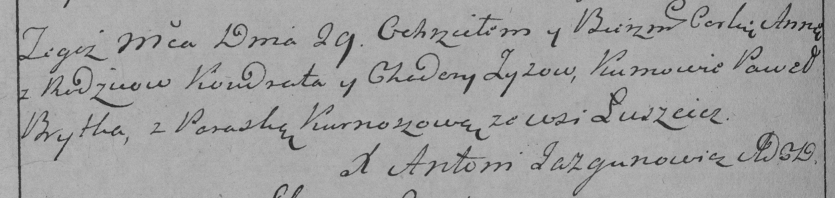 Tegoż Mca Dnia 29. Ochrzciłem y Bierzm Corkię Annę
z Rodziców Kondrata y Chodory Zyzow, Kumowie Paweł
Brytka, z Paraską Kurnoszową ze wsi Łuszcicz.
X Antoni Jazgunowicz